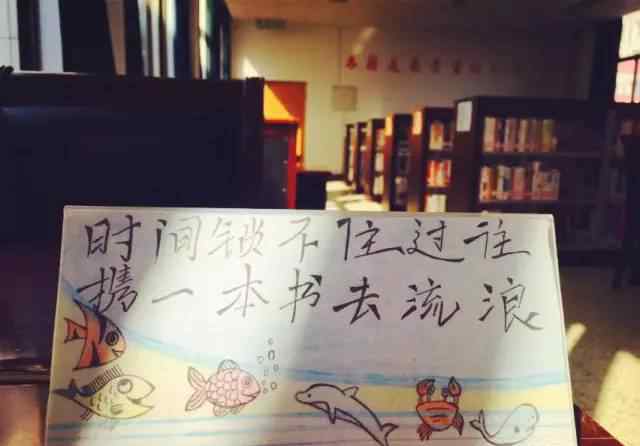 时间锁不住过往
携一本书去流浪